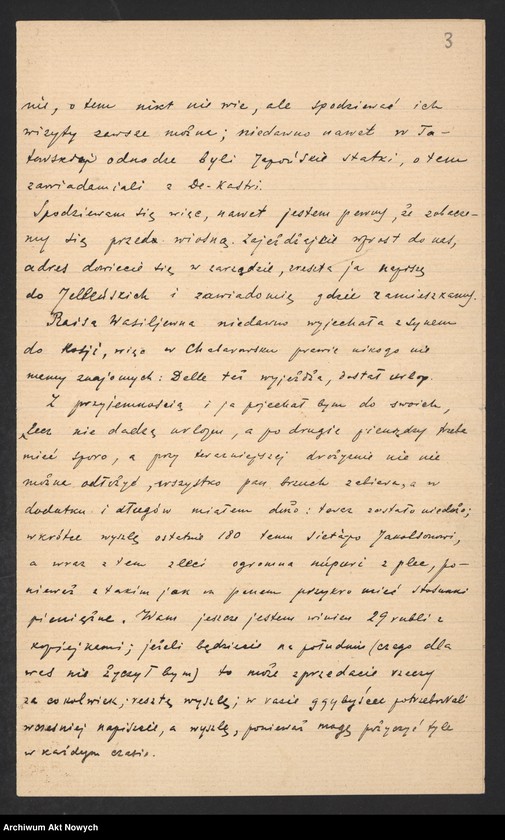 3
nić, o tem nikt nie wie, ale spodziewać ich
wizyty zawsze można; niedawno nawet w Ta-
towskiej odnodze byli Japońskie statki, o tem
zawiadamiali z De-Kastri.
Spodziewam się więc, nawet jestem pewny, że zobacze-
my się przed wiosną. Zajeżdżajcie wprost do nas,
adres dowiecie się w zarządzie, zresztą ja napiszę
do i zawiadomię gdzie zamieszkamy.
Raisa Wasiljewna niedawno wyjechała z synem
do Rosji, więc w Chabarowsku prawie nikogo nie
mamy znajomych: Delle też wyjeżdża, dostał urlop.
Z przyjemnością i ja pojechał bym do swoich,
lecz nie dadzą urlopu, a po drugie pieniędzy trzeba
mieć sporo, a przy teraźniejszej drożyźnie nic nie
można odłożyć, wszystko pan brzuch zabiera, a w
dodatku i długów miałem dużo: teraz zostało niedużo;
wkrótce wyszlę ostatnie 180 temu Jakobsonowi,
a wraz z tem zleci ogromna z plec, po-
nieważ z takim jak on panem przykro mieć stosunki
pieniężne. Wam jeszcze jestem winien 29 rubli z
kopiejkami; jeżeli będziecie na południe (czego dla
was nie życzył bym) to może sprzedacie rzeczy
za cokolwiek, resztę wyszlę; w razie gdybyście potrzebowali
wcześniej napiszcie, a wyszlę, ponieważ mogę pożyczyć tyle
w każdym czasie.
Archiwum Akt Nowych